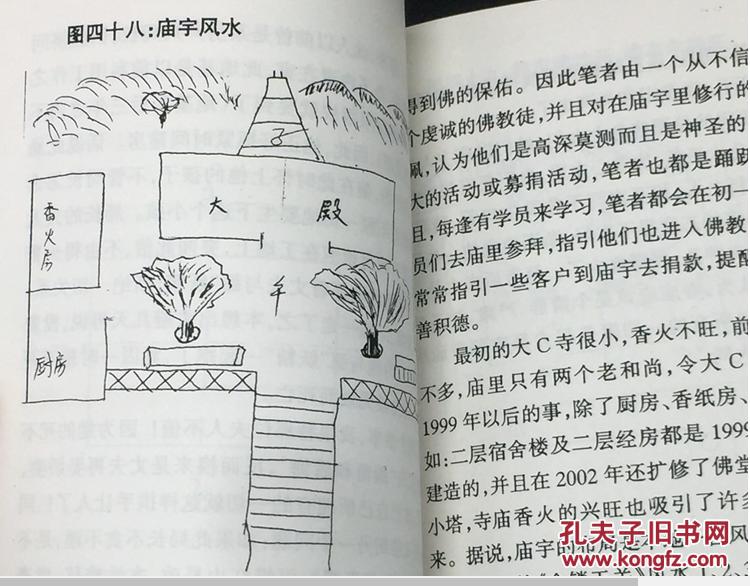 图四十八:庙宇风水
大 殿
香火房
厨房
得到佛的保佑。因此笔者由一个从不信
个虔诚的佛教徒,并且对在庙宇里修行的
佩,认为他们是高深莫测而且是神圣的
大的活动或募捐活动,笔者也都是踊跃
且,每逢有学员来学习,笔者都会在初一
员们去庙里参拜,指引他们也进入佛教
常常指引一些客户到庙宇去捐款,提醒
善积德。
最初的大C寺很小,香火不旺,前
不多,庙里只有两个老和尚,令大C
1999年以后的事,除了厨房、香纸房、
如:二层宿舍楼及二层经房都是1999
建造的,并且在2002年还扩修了佛堂
小塔,寺庙香火的兴旺也吸引了许多
来。据说,庙宇的布局是
风
孔夫子旧书网